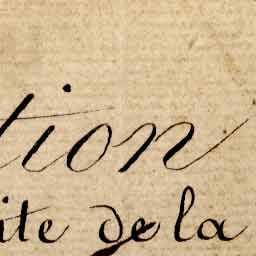 tion
ite de la